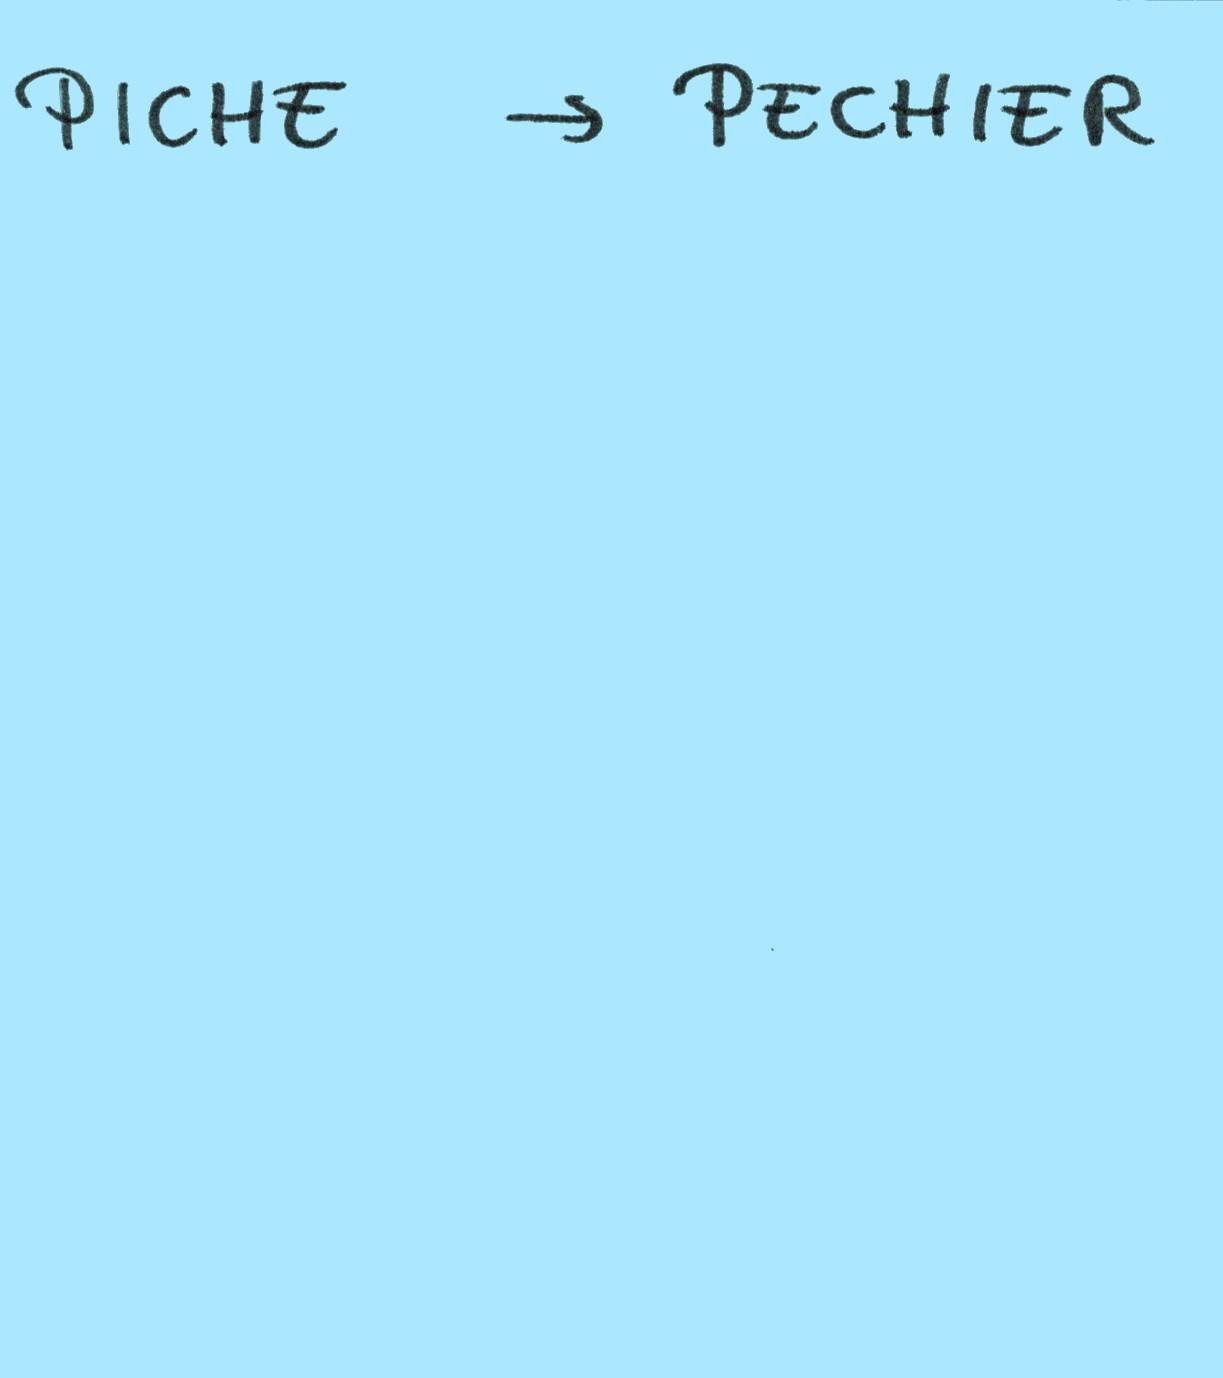 PICHE → PECHIER